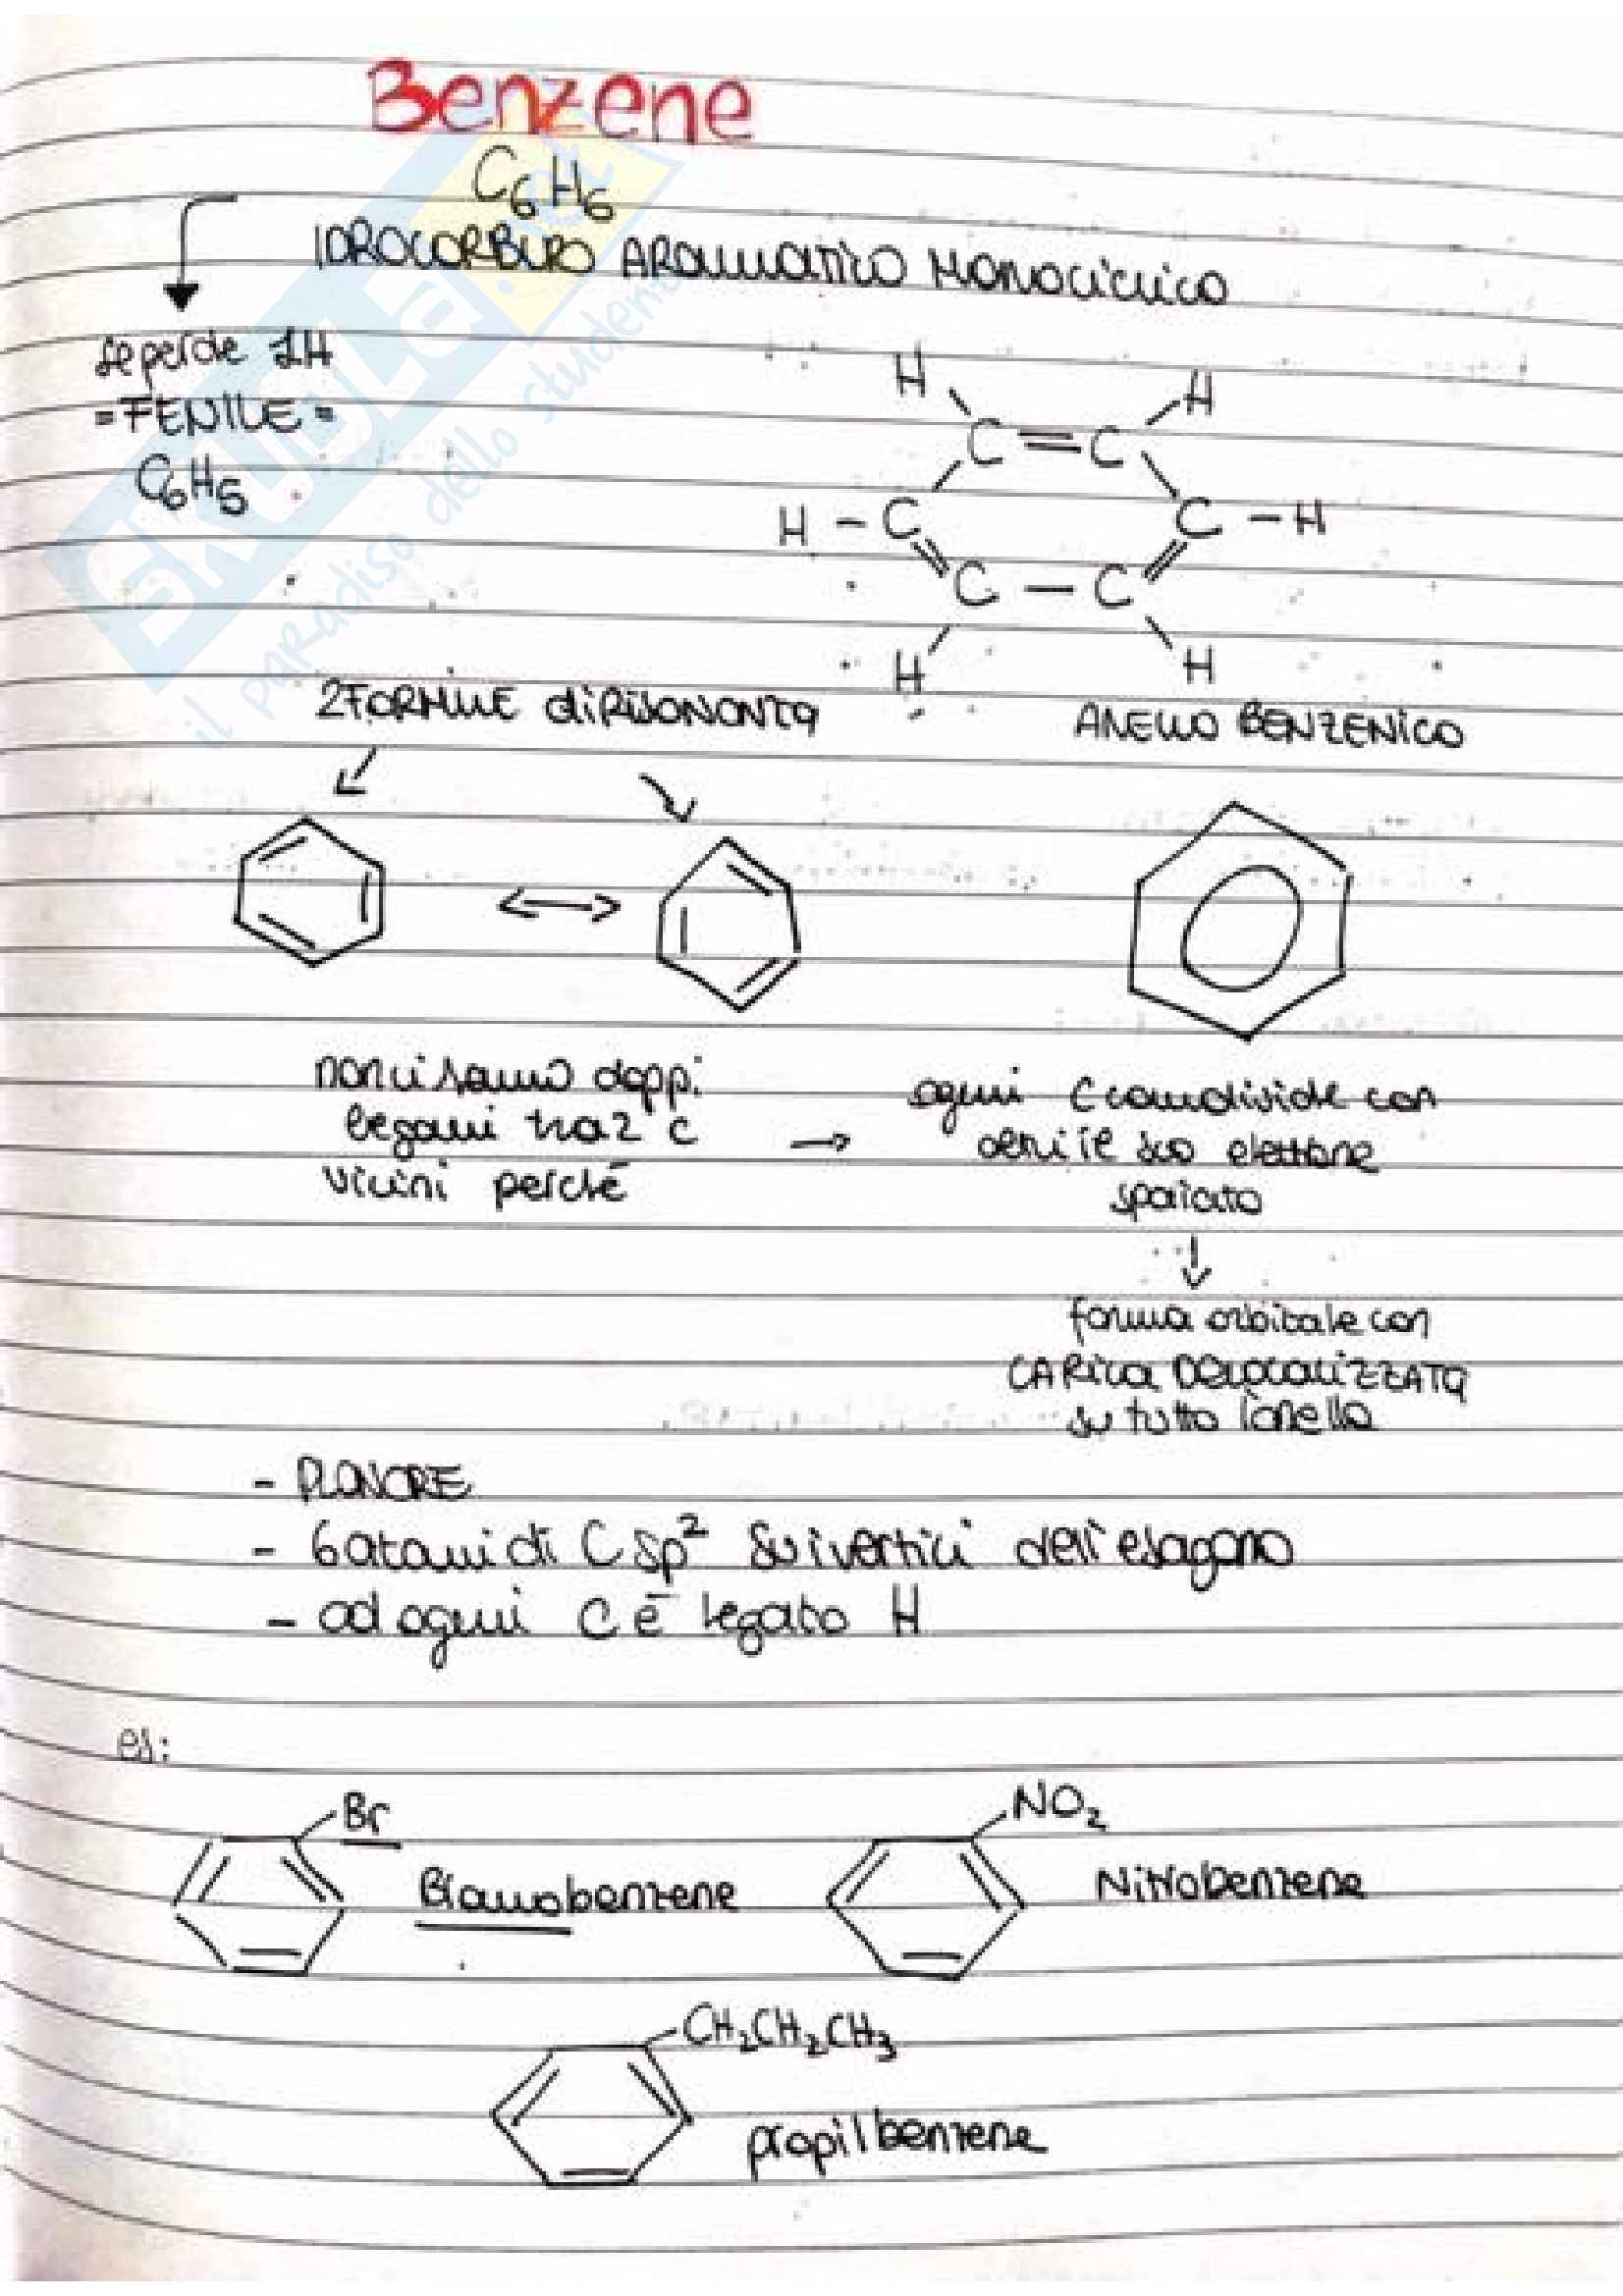 Benzene
C6H6
IDROCARBURO AROMATICO MONOCICLICO
se perde 1H
=FENILE=
C6H5
H H
C=C
H-C C-H
C-C
H H
2 FORMULE di RISONANZA
ANELLO BENZENICO
non ci sono doppi
legami tra 2 C
vicini perchè
ogni C condivide con
altri il suo elettrone
spaiato
forma orbitale con
CARICA DELOCALIZZATA
su tutto l'anello
- PLANARE
- 6 atomi di C sp² sui vertici dell'esagono
- ad ogni C è legato H
es:
Br
Bromobenzene
NO2
Nitrobenzene
CH2CH2CH3
propilbenzene
SKUOLA.net
il paradiso dello studente